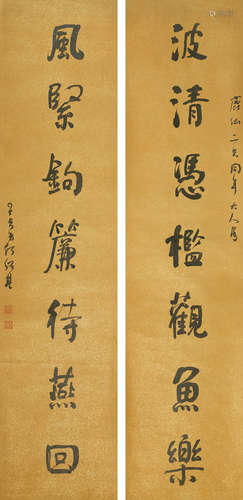 波清憑檻觀魚樂
二兄同年大人屬
風緊鉤簾待燕回
何紹基